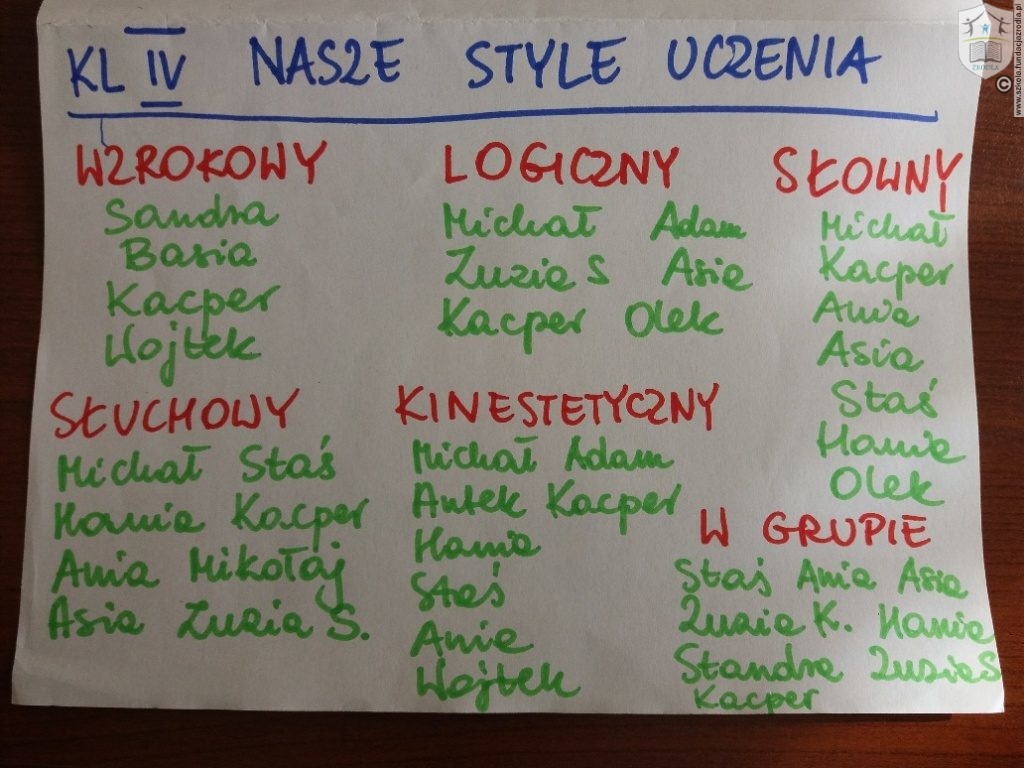 KL IV NASZE STYLE UCZENIA
WZROKOWY
Sandra
Basia
Kacper
Wojtek
LOGICZNY
Michał Adam
Zuzia S Asia
Kacper Olek
SŁOWNY
Michał
Kacper
Ania
Asia
Staś
Hania
Olek
SŁUCHOWY
Michał Staś
Hania Kacper
Ania Mikołaj
Asia Zuzia S.
KINESTETYCZNY
Michał Adam
Antek Kacper
Hania
Staś
Ania
Wojtek
W GRUPIE
Staś Ania Asia
Zuzia K. Hania
Standra Zuzia S
Kacper
ŹRÓDŁA
© www.szkola.fundacjazrodla.pl